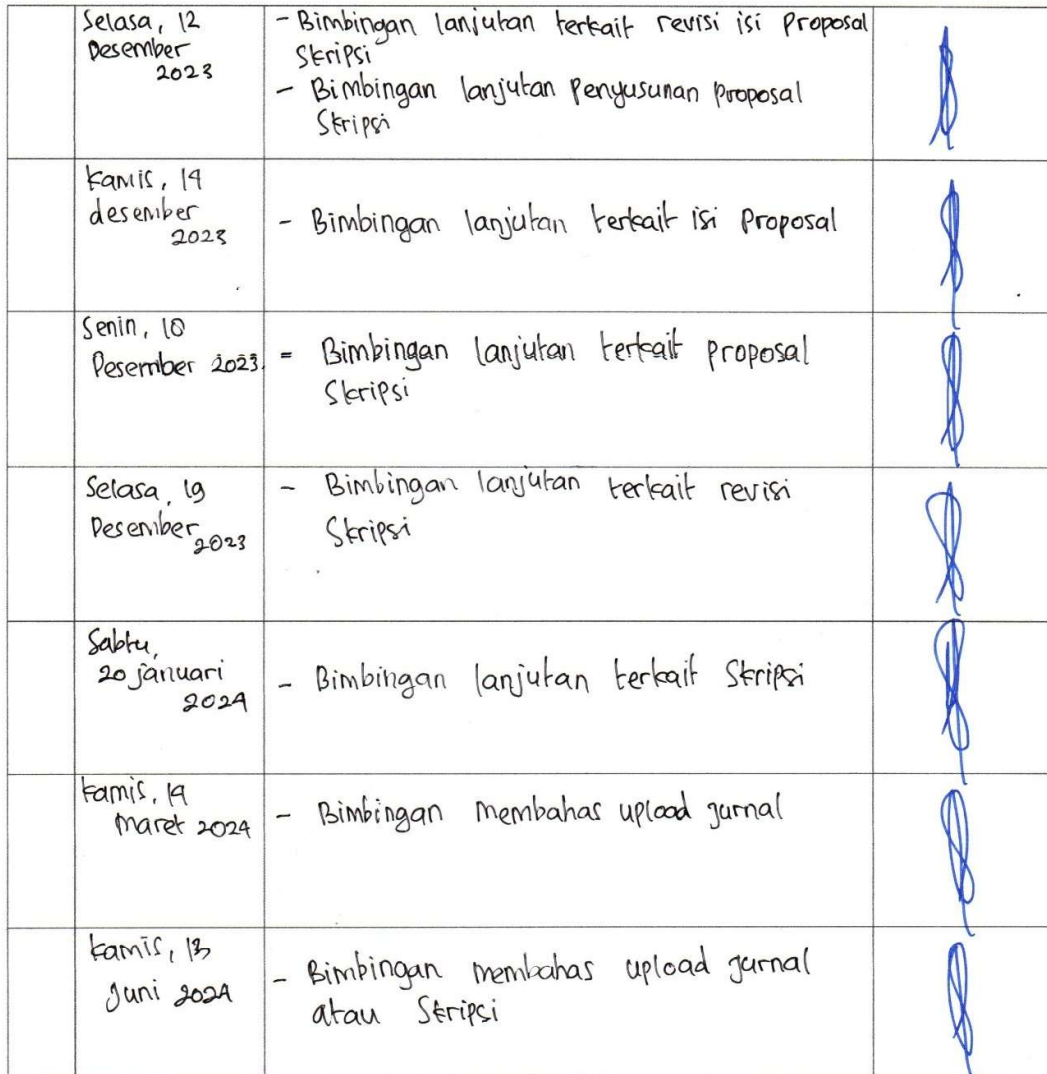 Selasa, 12
Desember
2023
- Bimbingan lanjutan terkait revisi isi proposal
Skripsi
- Bimbingan lanjutan Penyusunan proposal
Skripsi
Kamis, 14
desember
2023
- Bimbingan lanjutan terkait isi Proposal
Senin, 18
Desember 2023
= Bimbingan lanjutan terkait proposal
Skripsi
Selasa, 19
Desember
2023
- Bimbingan lanjutan terkait revisi
Skripsi
Sabtu,
20 januari
2024
- Bimbingan lanjutan terkait Skripsi
Kamis, 14
Maret 2024
- Bimbingan membahas upload jurnal
Kamis, 13
Juni 2024
- Bimbingan membahas upload jurnal
atau Skripsi